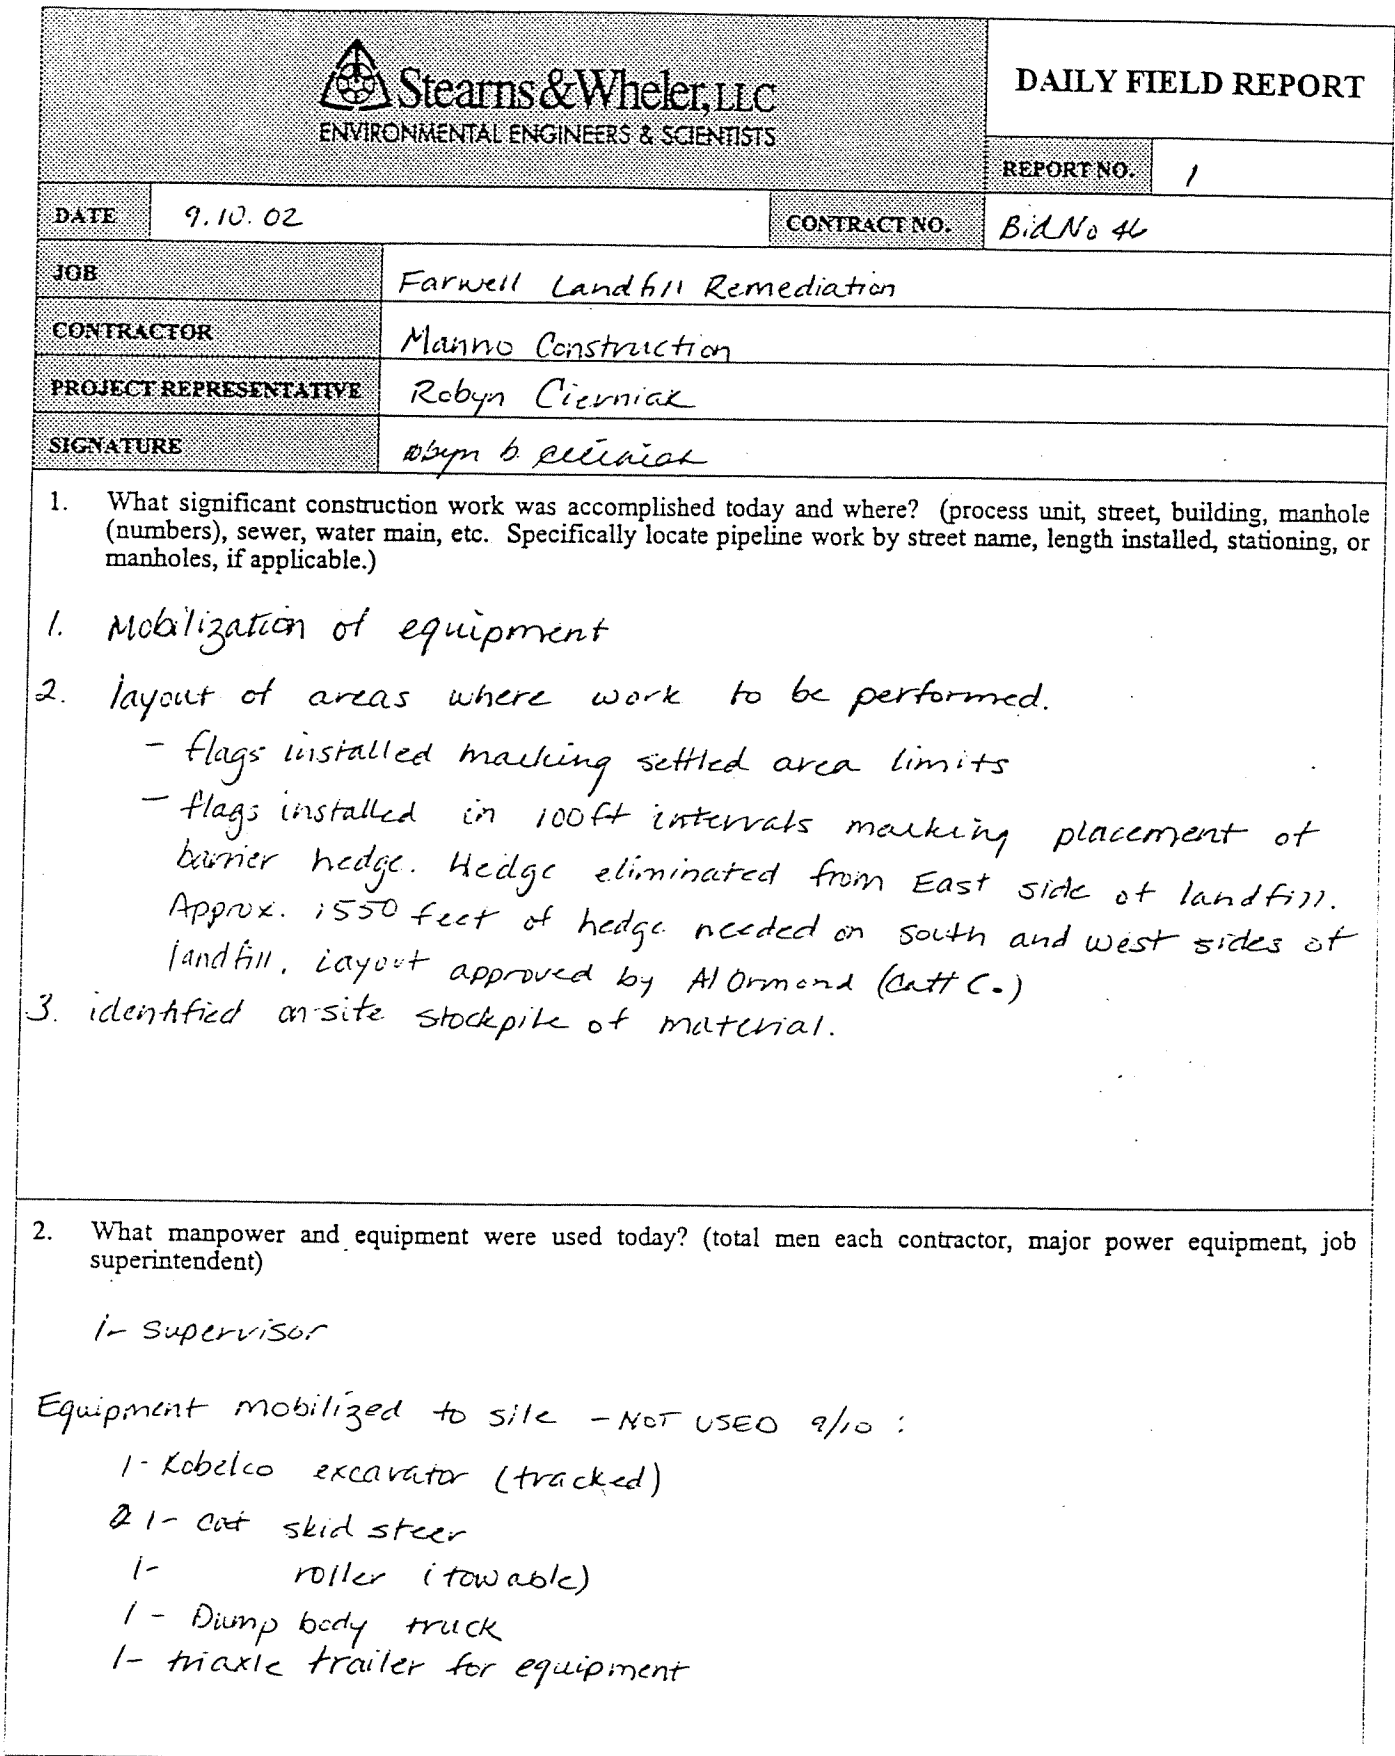 Stearns & Wheler, LLC
ENVIRONMENTAL ENGINEERS & SCIENTISTS
DAILY FIELD REPORT
REPORT NO. 1
DATE 9.10.02
CONTRACT NO. Bid No 46
JOB Farwell Landfill Remediation
CONTRACTOR Manno Construction
PROJECT REPRESENTATIVE Robyn Cierniak
SIGNATURE
1. What significant construction work was accomplished today and where? (process unit, street, building, manhole
(numbers), sewer, water main, etc. Specifically locate pipeline work by street name, length installed, stationing, or
manholes, if applicable.)
1. Mobilization of equipment
2. layout of areas where work to be performed.
- flags installed marking settled area limits
- flags installed in 100ft intervals marking placement of
barrier hedge. Hedge eliminated from East side of landfill.
Approx. 1550 feet of hedge needed on south and west sides of
landfill. Layout approved by Al Ormond (Catt C.)
3. identified on-site stockpile of material.
2. What manpower and equipment were used today? (total men each contractor, major power equipment, job
superintendent)
1- Supervisor
Equipment mobilized to site - NOT USED 9/10 :
1- Kobelco excavator (tracked)
1- Cat skid steer
1- roller (towable)
1- Dump body truck
1- triaxle trailer for equipment